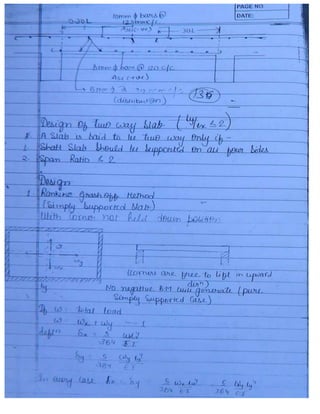 PAGE NO
DATE:
10mm ϕ bars @
0.30L
120mm c/c
Ast (-ve)
.30L
8mm ϕ bar @ 120 c/c
Ast (+ve)
8mm ϕ @
(distribution)
136
Design Of two way Slab (ly/lx ≤ 2)
A Slab is said to be two way only if -
1. Slab should be supported on all four sides
2. Span Ratio ≤ 2
Design
1. Rankine Grashoff Method
(Simply Supported Slab)
With Corner not held down position
(corners are free to lift in upward
dirn)
No negative BM will generate (pure
Simply Supported Case)
If w = total load
w = wx + wy - 1
deflⁿ δx = 5/384 wxlx⁴/EI
δy = 5/384 wyly⁴/EI
In every case δx = δy 5/384 wxlx⁴/EI = 5/384 wyly⁴/EI